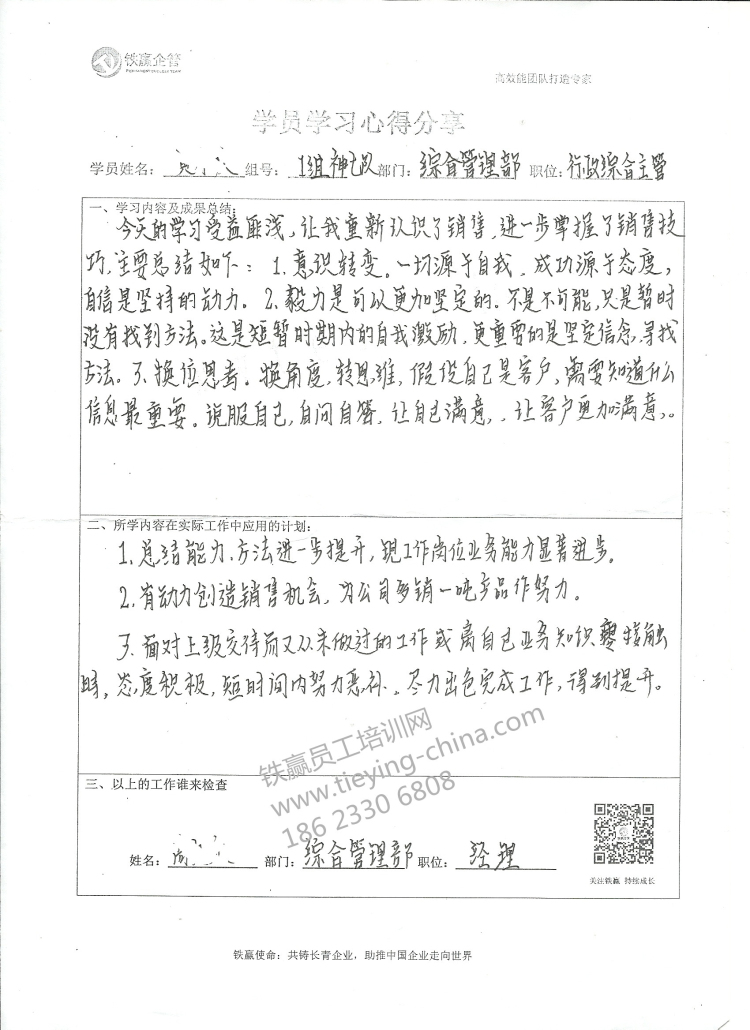 铁赢企管
高效能团队打造专家
学员学习心得分享
学员姓名: 组号: 1组神七队 部门: 综合管理部 职位: 行政综合主管
一、学习内容及成果总结:
今天的学习受益匪浅,让我重新认识了销售,进一步掌握了销售技
巧,主要总结如下:1.意识转变。一切源于自我,成功源于态度,
自信是坚持的动力。2.毅力是可以更加坚定的。不是不可能,只是暂时
没有找到方法。这是短暂时期内的自我激励,更重要的是坚定信念,寻找
方法。3.换位思考。换角度,转思维,假设自己是客户,需要知道什么
信息最重要。说服自己,自问自答,让自己满意,让客户更加满意。
二、所学内容在实际工作中应用的计划:
1.总结能力、方法进一步提升,现工作岗位业务能力显著进步。
2.有动力创造销售机会,为公司多销一吨产品作努力。
3.面对上级交待而又从未做过的工作或离自己业务知识零接触
时,态度积极,短时间内努力恶补。尽力出色完成工作,得到提升。
铁赢员工培训网
www.tieying-china.com
186 2330 6808
三、以上的工作谁来检查
姓名: 部门: 综合管理部 职位: 经理
关注铁赢 持续成长
铁赢使命:共铸长青企业,助推中国企业走向世界